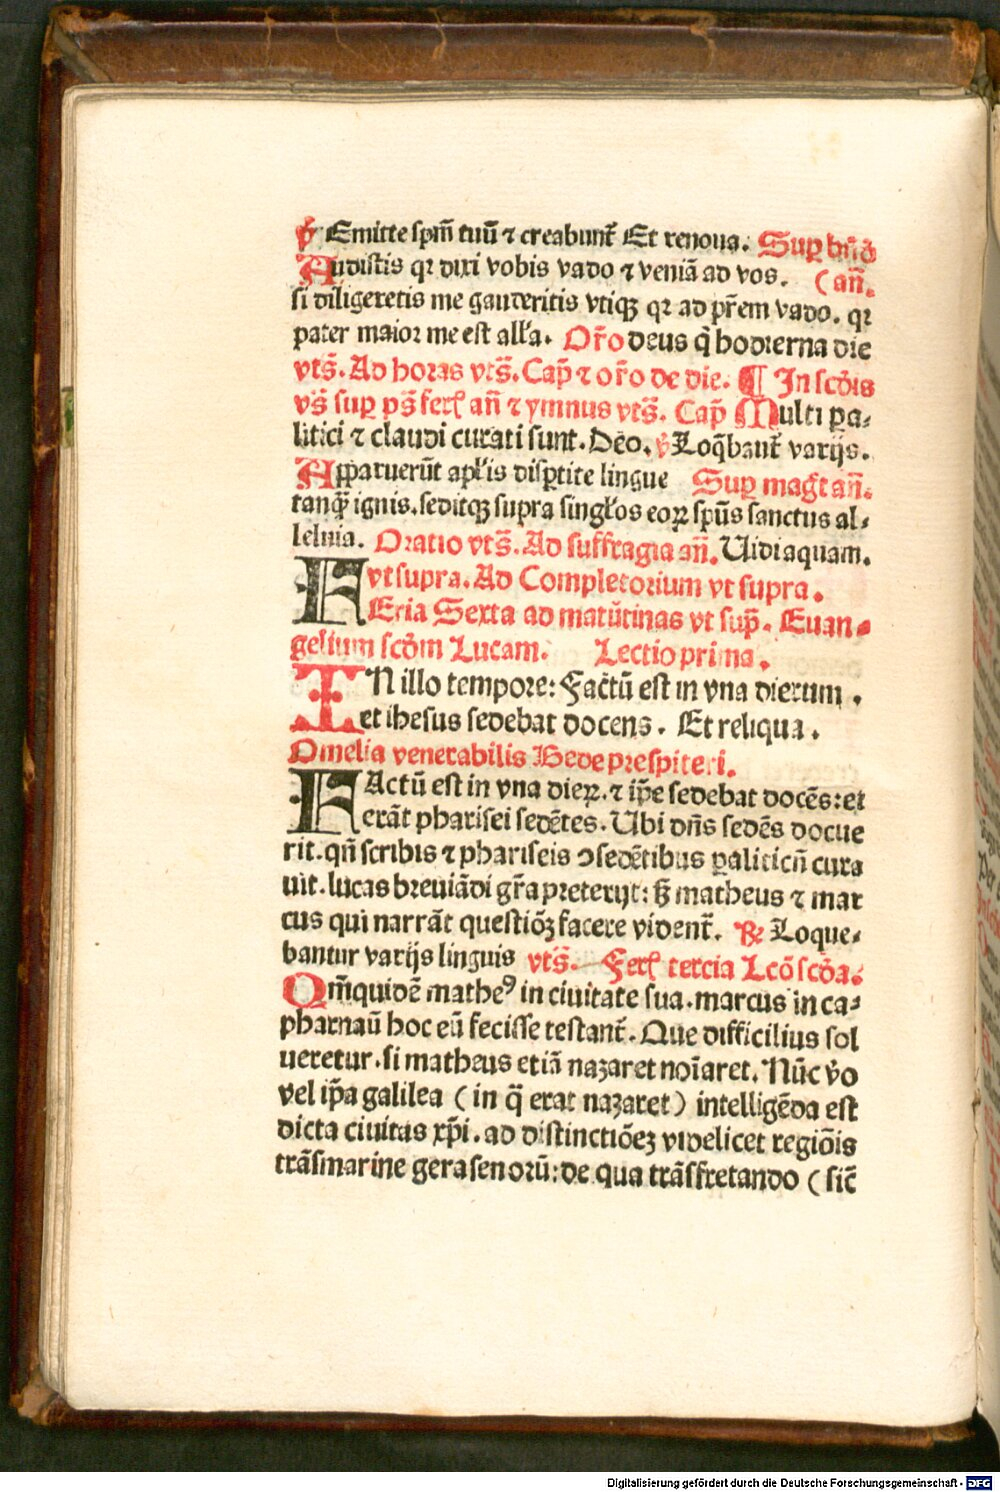 ℣ Emitte spm̄ tuū ⁊ creabunt̄ Et renoua. Suꝑ bn̄d
Audistis qꝛ dixi vobis vado ⁊ veniā ad vos. (an̄.
si diligeretis me gauderitis vtiqꝫ qꝛ ad pr̄em vado. qꝛ
pater maior me est all'a. Or̄o deus q̇ hodierna die
vts̄. Ad horas vts̄. Cap̄ ⁊ or̄o de die. ¶ In scd̄is
vs̄ suꝑ ps̄ ferꝭ an̄ ⁊ ymnus vts̄. Cap̄ Multi ꝑa⸗
litici ⁊ claudi curati sunt. Dēo. ℣ Loq̄bant̄ varijs.
Apparuerūt apl'is disꝑtite lingue Suꝑ magt̄ an̄.
tanqꝫ ignis. seditqꝫ supra singl'os eoꝝ spūs sanctus al⸗
leluia. Oratio vts̄. Ad suffragia an̄. Uidi aquam.
vt supra. Ad Completorium vt supra.
FEria Sexta ad matūtinas vt sup̄. Euan⸗
gelium scd̄m Lucam. Lectio prima.
IN illo tempore: Factū est in vna dierum .
et ihesus sedebat docens . Et reliqua .
Omelia venerabilis Bede prespiteri.
FActū est in vna dieꝝ. ⁊ ip̄e sedebat docēs: et
erāt pharisei sedētes. Ubi dn̄s sedēs docue
rit. qn̄ scribis ⁊ phariseis ↄsedētibus ꝑaliticū cura
uit. lucas breuiādi gr̄a preterijt: sꝫ matheus ⁊ mar
cus qui narrāt questiōꝫ facere vident̄. ℟ Loque⸗
bantur varijs linguis vts̄. Ferꝭ tercia Lcō scd̄a.
Qm̄ quidē matheꝰ in ciuitate sua. marcus in ca⸗
pharnaū hoc eū fecisse testant̄. Que difficilius sol
ueretur. si matheus etiā nazaret noīaret. Nūc v̇o
vel ip̄a galilea (in q̄ erat nazaret) intelligēda est
dicta ciuitas xp̄i. ad distinctiōeꝫ videlicet regiōis
trāsmarine gerasenorū: de qua trāsfretando (sic̄
Digitalisierung gefördert durch die Deutsche Forschungsgemeinschaft - DFG